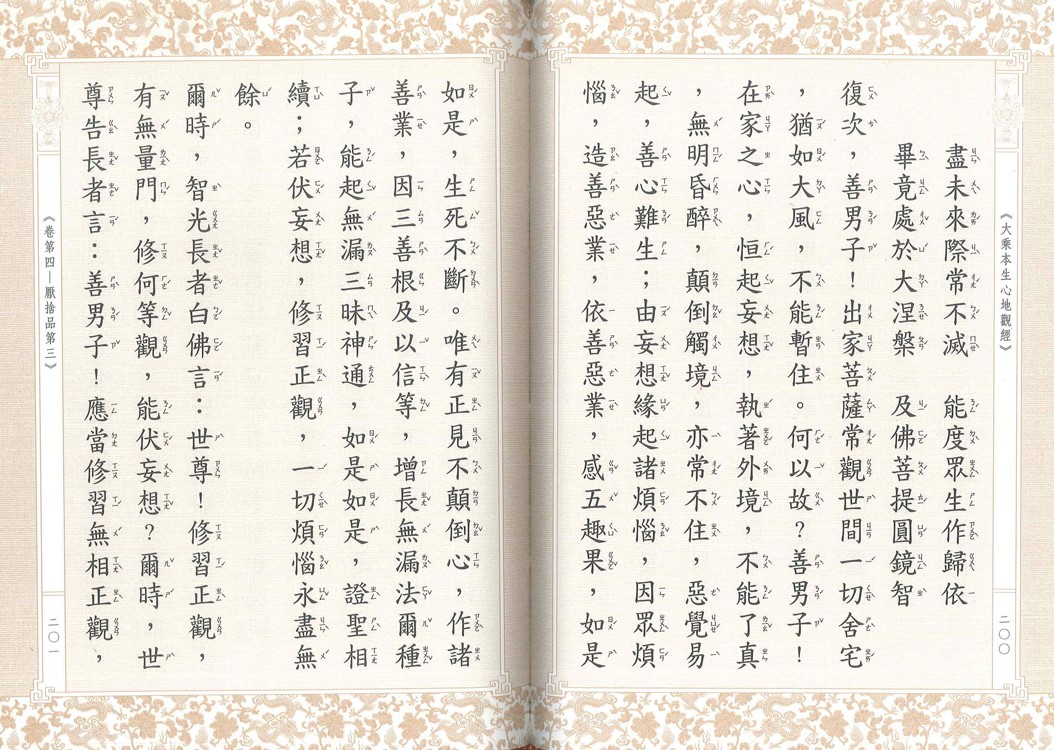 《大乘本生心地觀經》
盡未來際常不滅　能度眾生作歸依
畢竟處於大涅槃　及佛菩提圓鏡智
復次，善男子！出家菩薩常觀世間一切舍宅
，猶如大風，不能暫住。何以故？善男子！
在家之心，恒起妄想，執著外境，不能了真
，無明昏醉，顛倒觸境，亦常不住，惡覺易
起，善心難生；由妄想緣起諸煩惱，因眾煩
惱，造善惡業，依善惡業，感五趣果，如是
二〇〇
如是，生死不斷。唯有正見不顛倒心，作諸
善業，因三善根及以信等，增長無漏法爾種
子，能起無漏三昧神通，如是如是，證聖相
續；若伏妄想，修習正觀，一切煩惱永盡無
餘。
爾時，智光長者白佛言：世尊！修習正觀，
有無量門，修何等觀，能伏妄想？爾時，世
尊告長者言：善男子！應當修習無相正觀，
《卷第四—厭捨品第三》
二〇一